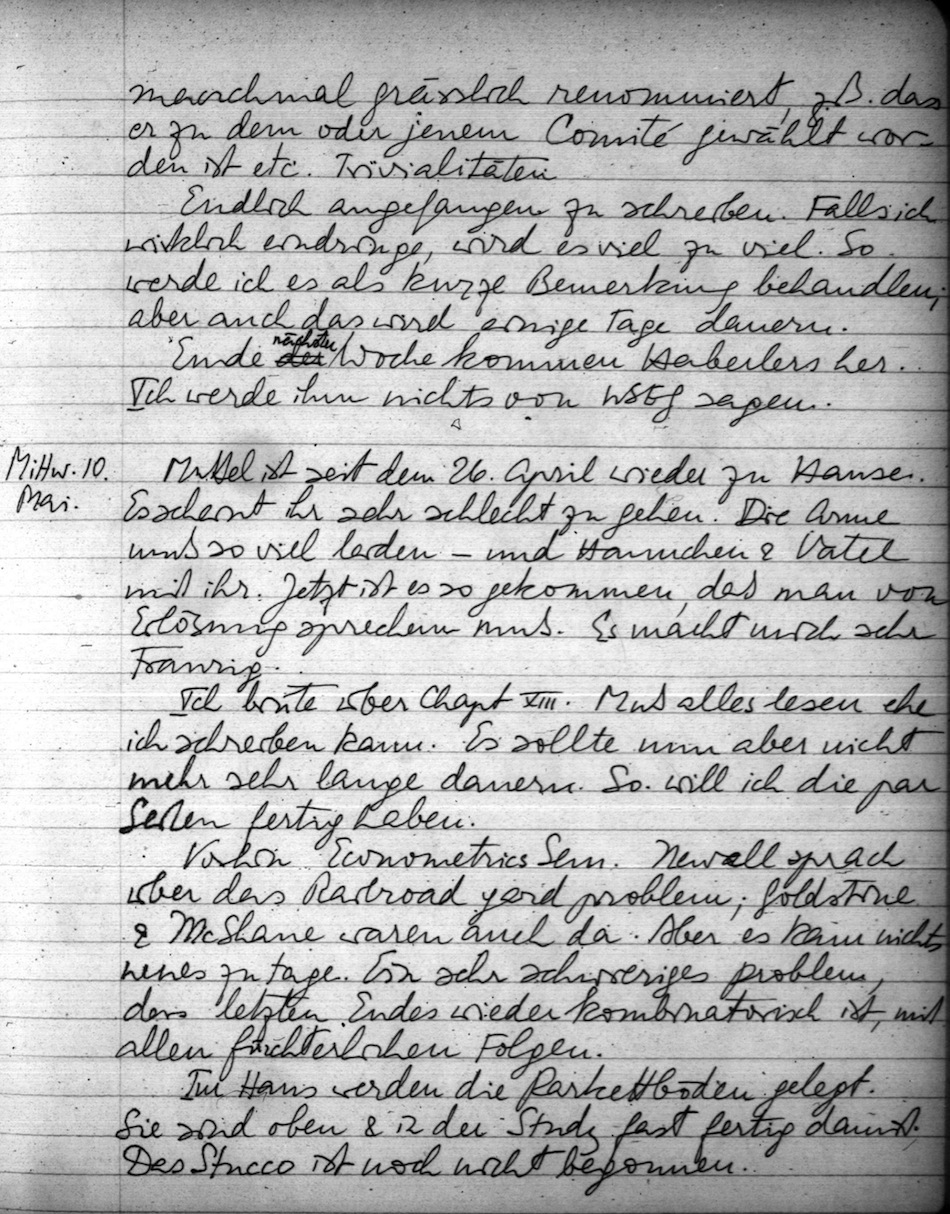 manchmal grässlich renommiert, z.B. das
er zu dem oder jenem Comité gewählt wor-
den ist etc. Trivialitäten
Endlich angefangen zu schreiben. Falls ich
wirklich eindringe, wird es viel zu viel. So
werde ich es als kurze Bemerkung behandlen,
aber auch das wird einige Tage dauern.
nächster
Ende der Woche kommen Haberlers her.
Ich werde ihm nichts von WSEG sagen.
Mittw. 10.
Mai.
Muttel ist seit dem 26. April wieder zu Hause.
Es scheint ihr sehr schlecht zu gehen. Die Arme
muß so viel leiden – und Hannchen & Vatel
mit ihr. Jetzt ist es so gekommen, daß man von
Erlösung sprechen muß. Es macht mich sehr
Traurig.
Ich brüte über Chapt XIII. Muß alles lesen ehe
ich schreiben kann. Es sollte nun aber nicht
mehr sehr lange dauern. So will ich die par
Seiten fertig haben.
Vorhin Econometrics Sem. Newell sprach
über das Railroad yard problem; Goldstine
& McShane waren auch da. Aber es kam nichts
neues zu tage. Ein sehr schwieriges problem,
das letzten Endes wieder kombinatorisch ist, mit
allen fürchterlichen Folgen.
Im Haus werden die Parkettböden gelegt.
Sie sind oben & in der Study fast fertig damit.
Das Stucco ist noch nicht begonnen.